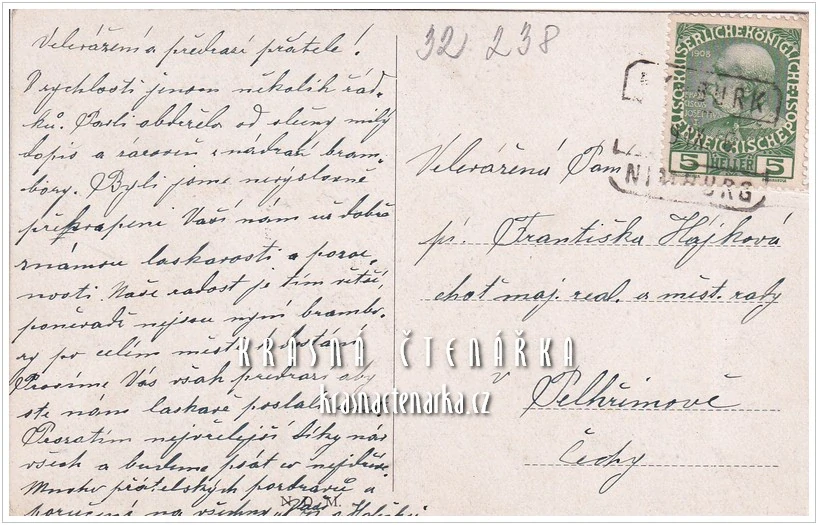 Velevážení a předrazí přátelé!
V rychlosti jenom několik řád-
ků. Právě obdržela od slečny milý
dopis a zároveň s nádraží bram-
bory. Byli jsme nevýslovně
překvapeni Vaší nám už dobře
známou laskavostí a pozor-
ností. Naše radost je tím větší,
poněvadž nejsou nyní brambo-
ry po celém městě k dostání.
Prosíme Vás však předrazí aby
ste nám laskavě poslali
Prozatím nejvřelejší díky nás
všech a budeme psát co nejdříve.
Mnoho přátelských pozdravů a
poručená na všechny
32 238
KAISERLICHE KÖNIGLICHE
1908
ÖSTERREICHISCHE POST
5 HELLER 5
BURK
NIMBURG
Velevážená Paní
pí. Františka Hájková
choť maj. reál. a měst. rady
v Pelhřimově
Čechy
KRÁSNÁ ČTENÁŘKA
krasnactenarka.cz
N. D. M.